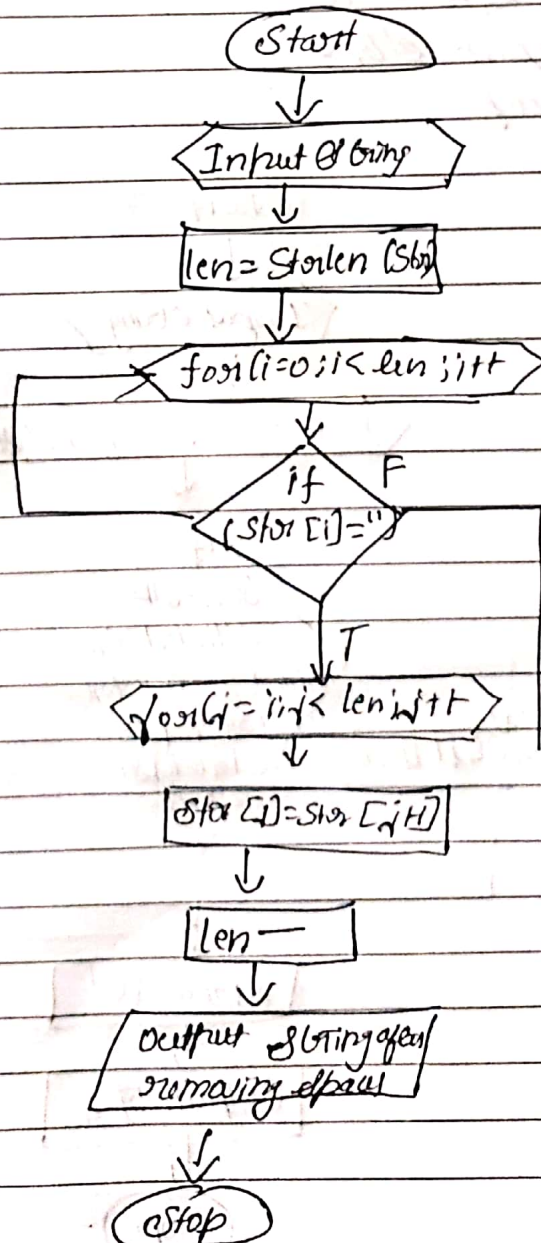 Start
Input String
len = Strlen (Str)
for(i=0;i<len;i++
if
F
(Str[i]='')
T
for(j=i;j<len;j++
Str[j]=Str[j+1]
len--
Output String after
removing spaces
Stop